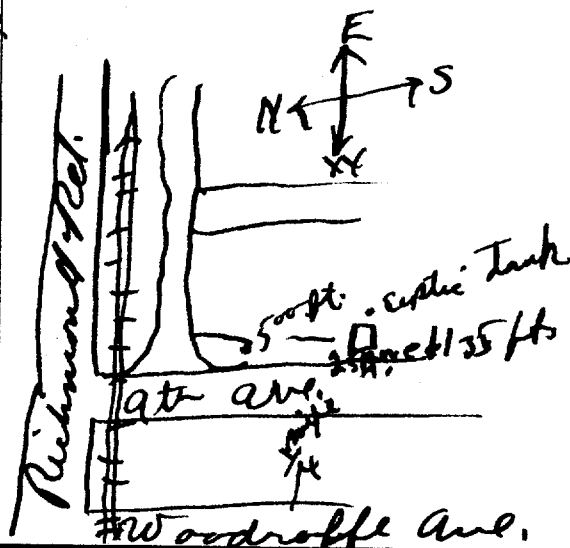 E
N S
W
Richmond Rd.
500 ft. septic Tank
25 ft. 135 fts
9th Ave.
1/4 mile
Woodroffe Ave.